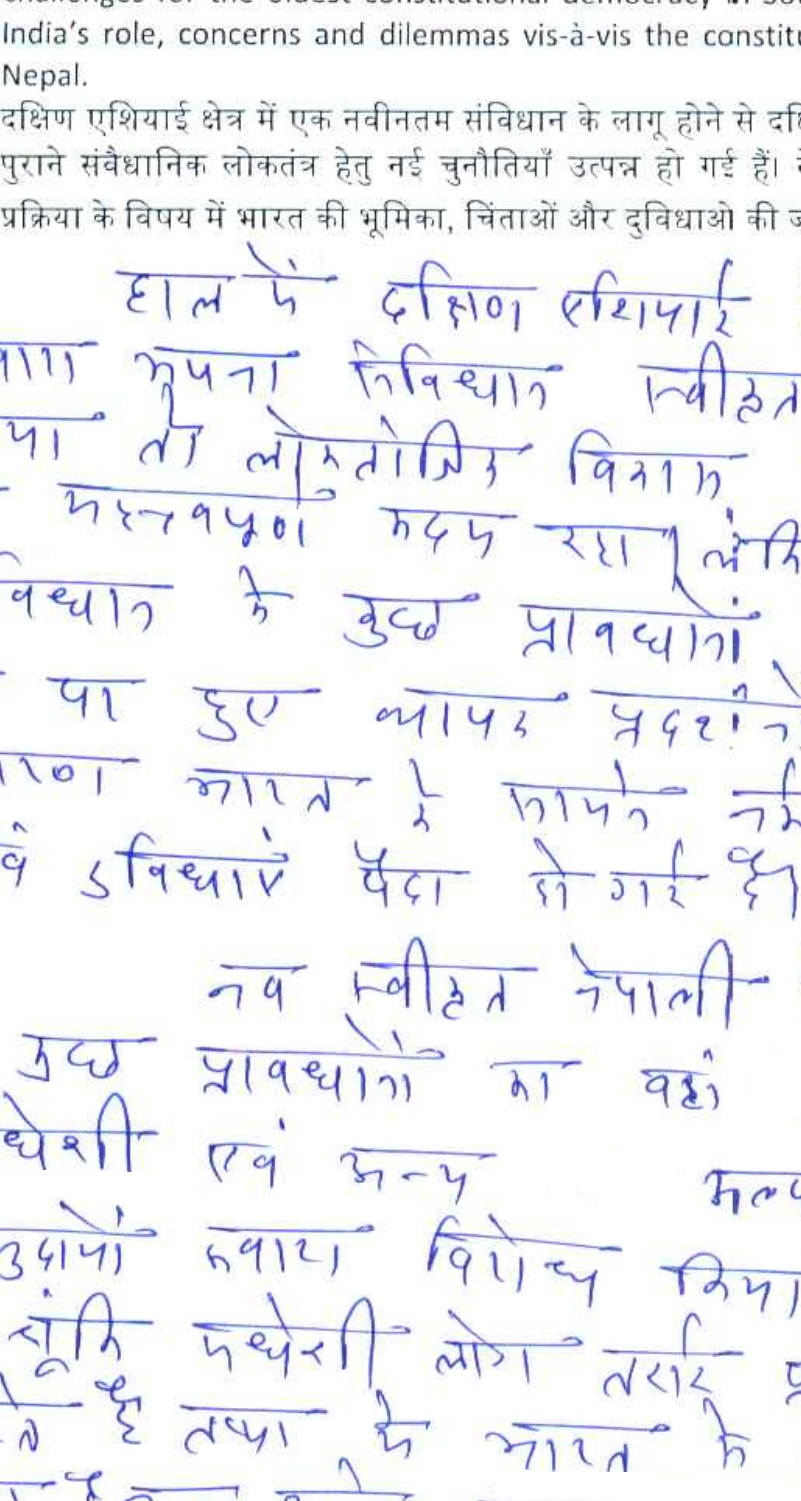 India's role, concerns and dilemmas vis-à-vis the constitu
Nepal.
दक्षिण एशियाई क्षेत्र में एक नवीनतम संविधान के लागू होने से दक्षि
पुराने संवैधानिक लोकतंत्र हेतु नई चुनौतियाँ उत्पन्न हो गई हैं।
प्रक्रिया के विषय में भारत की भूमिका, चिंताओं और दुविधाओ की ज
हाल में दक्षिण एशियाई
अपना संविधान स्वीकृत
या तो लोकतांत्रिक विकास
महत्वपूर्ण कदम रहा। लेकि
विधान के कुछ प्रावधानों
पा हुए व्यापक प्रदर्शनों
ारण भारत के सामने नई
वं दुविधाएं पैदा हो गई है।
नव स्वीकृत नेपाली
कुछ प्रावधानों का वहां
धेशी एवं अन्य अल्प
ुदायों द्वारा विरोध किया
चूंकि मधेशी लोग तराई प्र
ते है तथा वे भारत के